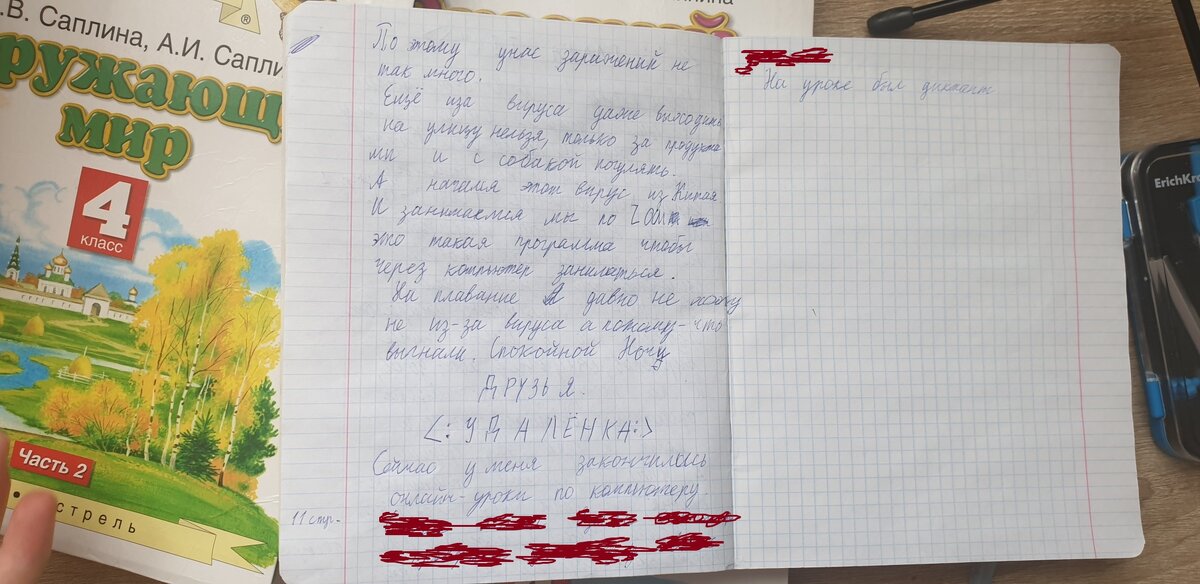 .В. Саплина, А.И. Сапли
ружающ
мир
4
класс
Часть 2
стрель
®
лина
По этому унас заражений не
так много.
Ещё иза вируса даже выходить
на улицу нельзя, только за продукта
ми и с собакой погулять.
А начался этот вирус из Китая
И занимаемся мы по ZOOM
это такая программа чтобы
через компьютер заниматься.
На плавание я давно не хожу
не из-за вируса а потому-что
выгнали. Спокойной Ночи
ДРУЗЬЯ.
<: УДАЛЁНКА:>
Сейчас у меня закончились
онлайн-уроки по компьютеру.
11 стр-
На уроке был диктант
ErichKra